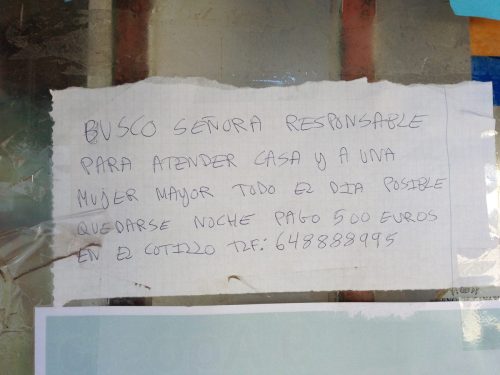 BUSCO SEÑORA RESPONSABLE
PARA ATENDER CASA Y A UNA
MUJER MAYOR TODO EL DIA POSIBLE
QUEDARSE NOCHE PAGO 500 EUROS
EN EL COTILLO TLF: 648888995